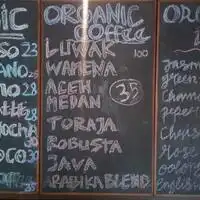 IC
SO 23
ANO
NO 28
OCHA
OCO 30
ORGANIC
Coffee
LUWAK 100
WAMENA
ACEH
MEDAN
35
TORAJA
ROBUSTA
JAVA
ARABIKA BLEND
OR
Jasm
green
Cham
peper
Rose
oolong
English